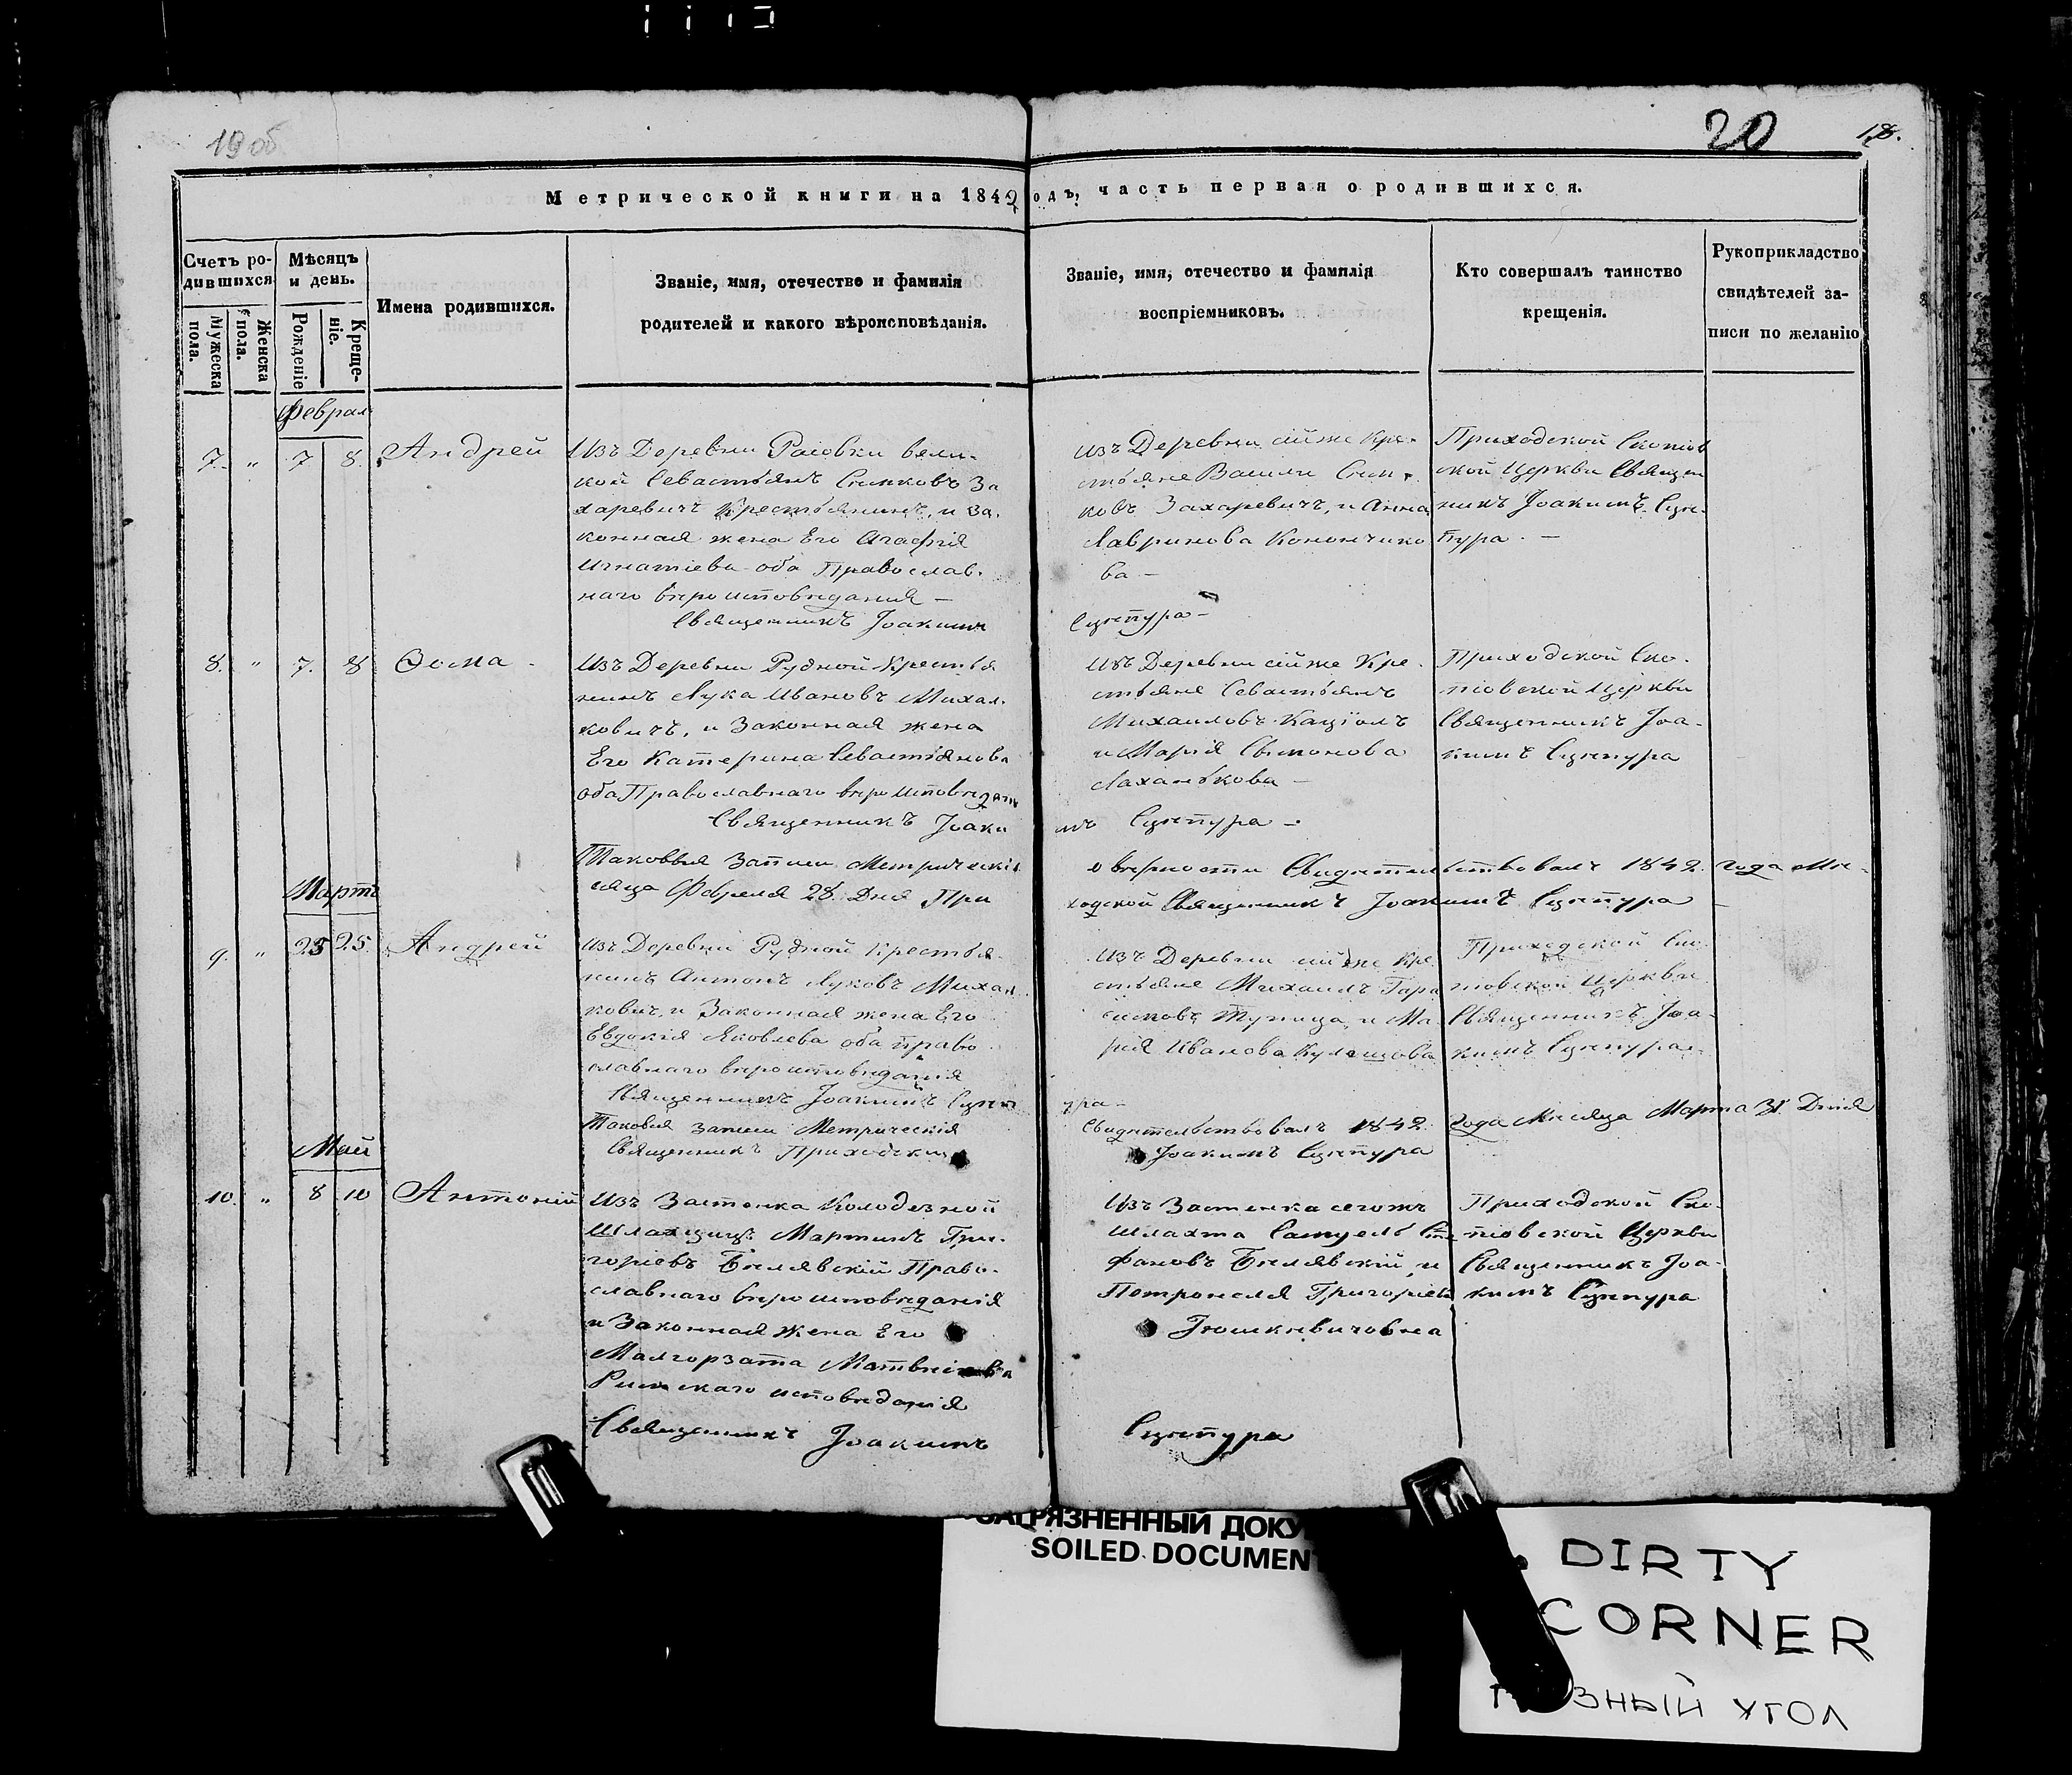 19 об
20
18.
Метрической книги на 1842
одъ, часть первая о родившихся.
Счетъ ро-
дившихся
Мужеска
пола.
Женска
пола.
Мѣсяцъ
и день.
Рожденіе
Креще-
ніе.
Имена родившихся.
Званіе, имя, отечество и фамилія
родителей и какого вѣроисповѣданія.
Званіе, имя, отечество и фамилія
воспріемниковъ.
Кто совершалъ таинство
крещенія.
Рукоприкладство
свидѣтелей за-
писи по желанію
Феврал
7. " 7 8. Андрей
Изъ Деревни Расовки вели-
кой Севастьянъ Симковъ За
харевичъ Крестьянинъ, и за-
конная жена Его Агафія
Игнатіева оба Православ-
наго вѣроисповѣданія —
Священникъ Іоакимъ
изъ Деревни сійже Кре-
стьяне Василій Сим-
ковъ Захаревичъ, и Анна
Лавринова Конончико
ва —
Сцепура —
Приходской
ской Церкви Священ
никъ Іоакимъ Сце-
пура. —
8. " 7. 8 Ѳома -
Изъ Деревни Рудной Крестья
нинъ Лука Ивановъ Михал-
ковичъ, и Законная жена
Его Катерина Севастьянова
оба Православнаго вѣроисповѣдан
Священникъ Іоаки
Изъ Деревни сійже Кре-
стьяне Севастьянъ
Михаиловъ
и Марія Сымонова
Лаханькова —
мъ Сцепура —
Приходской Ско-
піовской Церкви
Священникъ Іоа-
кимъ Сцепура
Таковыя Записи Метрическія
о вѣрности Свидѣтельствовалъ 1842. года Мѣ-
сяца Февраля 28. Дня При
ходской Священникъ Іоакимъ Сцепура —
Мартъ
9. " 25 25. Андрей
изъ Деревни Рудной Крестья-
нинъ Антонъ Луковъ Михал
ковичъ, и Законная жена Его
Евдокія Яковлева оба право-
славнаго вѣроисповѣданія
Священникъ Іоакимъ Сцеп
изъ Деревни сійже Кре-
стьяне Михаилъ Гара
симовъ Тупица, и Ма-
рія Иванова Кулешова
ура —
Приходской Ско-
піовской Церкви
Священникъ Іоа-
кимъ Сцепура —
Таковыя записи Метрическія
Свидѣтельствовалъ 1842 года Мѣсяца Марта 31. Дня
Священникъ Приходскій
Іоакимъ Сцепура
Май
10. " 8 10 Антоній
Изъ Застенка Колодезной
Шляхцицъ Мартинъ Гри-
горіевъ Бѣлявскій Право-
славнаго вѣроисповѣданія
и Законная жена Его
Малгорзата Матвѣіева
Римскаго исповѣданія
Священникъ Іоакимъ
Изъ Застенка сегожъ
Шляхта Самуелъ Сте
фановъ Бѣлявскій и
Петронеля Григоріева
Юшкевичовна
Сцепура
Приходской Ско-
піовской Церкви
Священникъ Іоа-
кимъ Сцепура
ЗАГРЯЗНЕННЫЙ ДОКУ
SOILED DOCUMENT
DIRTY
CORNER
ЗНЫЙ УГОЛ